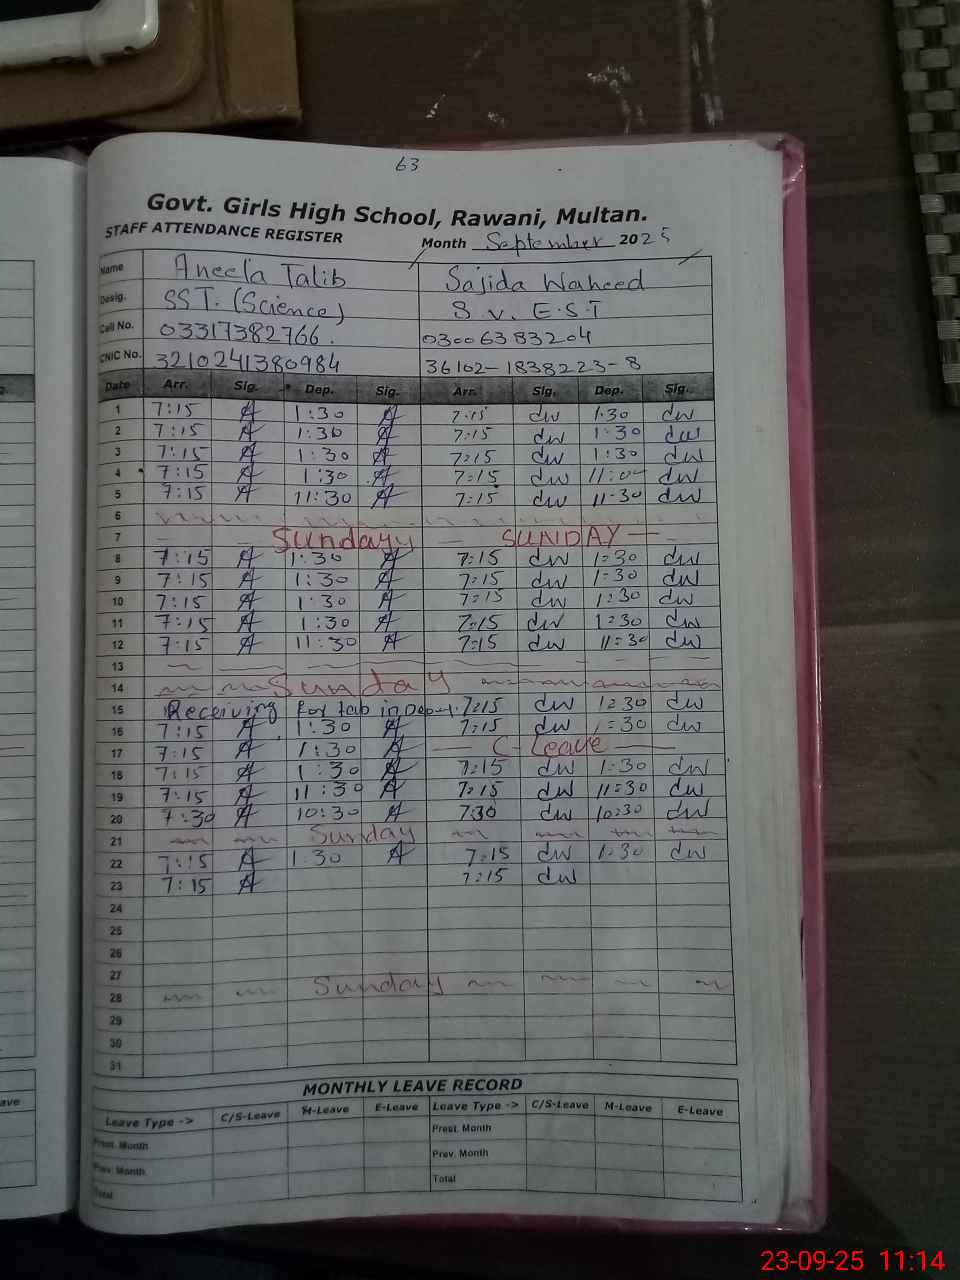 63
Govt. Girls High School, Rawani, Multan.
STAFF ATTENDANCE REGISTER
Month September 2025
Name Aneela Talib Sajida Waheed
Desig. SST. (Science) S v. E.S.T
Cell No. 03317382766. 03006383204
CNIC No. 3210241380984 36102-1838223-8
Date Arr. Sig. Dep. Sig. Arr. Sig. Dep. Sig.
1 7:15 A 1:30 A 7:15 dw 1:30 dw
2 7:15 A 1:30 A 7:15 dw 1:30 dw
3 7:15 A 1:30 A 7:15 dw 1:30 dw
4 7:15 A 1:30 A 7:15 dw dw
5 7:15 A 11:30 A 7:15 dw 11:30 dw
6
7 Sunday SUNDAY
8 7:15 A 1:30 A 7:15 dw 1:30 dw
9 7:15 A 1:30 A 7:15 dw 1:30 dw
10 7:15 A 1:30 A 7:15 dw 1:30 dw
11 7:15 A 1:30 A 7:15 dw 1:30 dw
12 7:15 A 11:30 A 7:15 dw 11:30 dw
13
14 Sunday
15 Receiving for tab in 7:15 dw 1:30 dw
16 7:15 A 1:30 A 7:15 dw 1:30 dw
17 7:15 A 1:30 A C-Leave
18 7:15 A 1:30 A 7:15 dw 1:30 dw
19 7:15 A 11:30 A 7:15 dw 11:30 dw
20 7:30 A 10:30 A 7:30 dw 10:30 dw
21 Sunday
22 7:15 A 1:30 A 7:15 dw 1:30 dw
23 7:15 A 7:15 dw
24
25
26
27
28 Sunday
29
30
31
MONTHLY LEAVE RECORD
Leave Type -> C/S-Leave M-Leave E-Leave Leave Type -> C/S-Leave M-Leave E-Leave
Prest. Month Prest. Month
Prev. Month Prev. Month
Total Total
ave
23-09-25 11:14